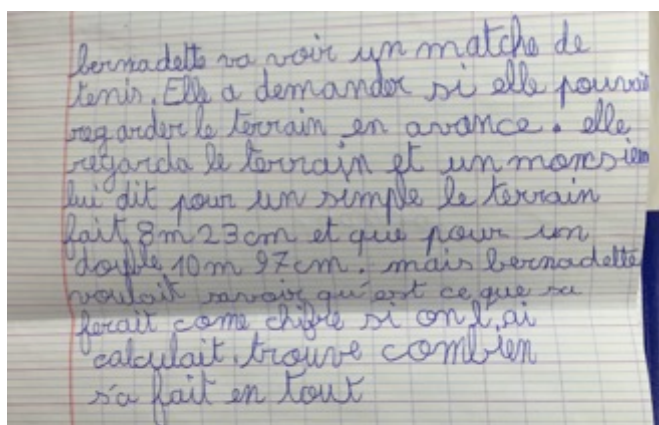 bernadette va voir un matche de
tenis. Elle a demander si elle pouvait
regarder le terrain en avance. elle
regarda le terrain et un monsieur
lui dit pour un simple le terrain
fait 8m 23cm et que pour un
double 10m 97cm. mais bernadette
voulait savoir qu'est ce que sa
ferait come chifre si on l,ai
calculait. trouve combien
s'a fait en tout